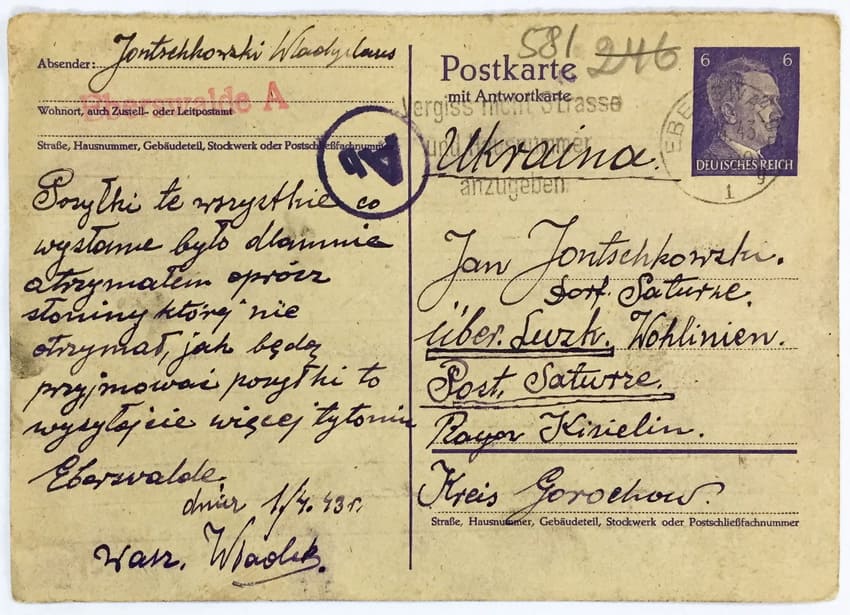 Absender: Jontschkowski Wladyslaus
Eberswalde A
Wohnort, auch Zustell- oder Leitpostamt
Straße, Hausnummer, Gebäudeteil, Stockwerk oder Postschließfachnummer
Ab
Posyłki te wszystkie co
wysłane było dlamnie
otrzymałem oprócz
słoniny której nie
otrzymał, jak będą
przyjmować posyłki to
wysyłajcie więcej tytoniu
Eberswalde.
dnia 1/4. 43 r.
wasz. Władek.
581 246
Postkarte
mit Antwortkarte
Vergiss nicht Strasse
und Hausnummer
anzugeben
6 6
DEUTSCHES REICH
EBERSWALDE
43
1 g
Ukraina.
Jan Jontschkowski.
Dorf. Saturze.
über. Luzk. Wohlinien.
Post. Saturze.
Rayon Kisielin.
Kreis Gorochow.
Straße, Hausnummer, Gebäudeteil, Stockwerk oder Postschließfachnummer